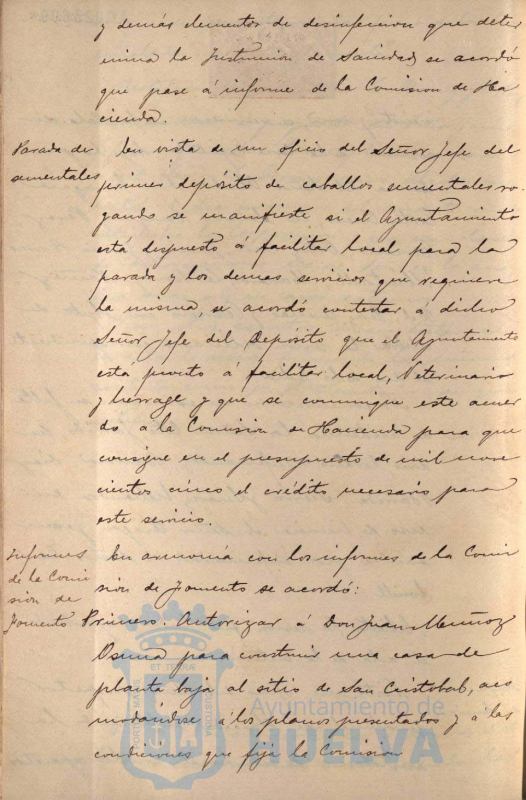 y demás elementos de desinfeccion que deter
mina la Instruccion de Sanidad, se acordó
que pase á informe de la Comision de Ha
cienda.
Parada de
sementales
En vista de un oficio del Señor Jefe del
primer depósito de caballos sementales ro-
gando se manifieste si el Ayuntamiento
está dispuesto á facilitar local para la
parada y los demas servicios que requiere
la misma, se acordó contestar á dicho
Señor Jefe del Depósito que el Ayuntamiento
está pronto á facilitar local, Veterinario
y herrage y que se comunique este acuer
do á la Comision de Hacienda para que
consigne en el presupuesto de mil nove
cientos cinco el crédito necesario para
este servicio.
Informes
de la Comi
sion de
Fomento
En armonía con los informes de la Comi
sion de Fomento se acordó:
Primero. Autorizar á Don Juan Muñoz
Osuna para construir una casa de
planta baja al sitio de San Cristobal, aco
modándose á los planos presentados y á las
condiciones que fija la Comision
Ayuntamiento de
HUELVA